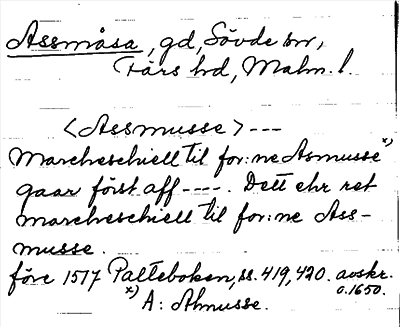 Assmåsa, gd, Sövde sn,
Färs hd, Malm. l.
<Assmusse> ---
Marcheschiell til for:ne Asmusse x)
gaar först aff ----. Dett ehr ret
marcheschiell til for:ne Ass-
musse.
före 1517 Palteboken, ss. 419, 420. avskr.
c. 1650.
x) A: Ahmusse.